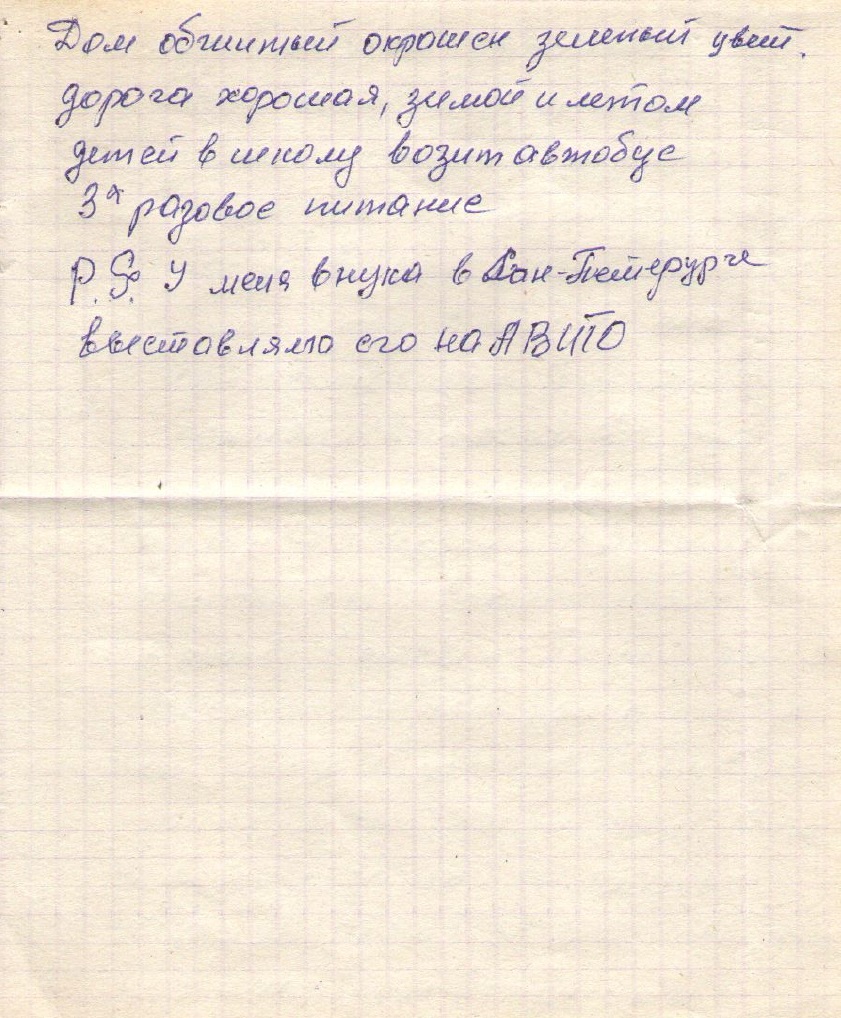 Дом обшитый окрашен зеленый цвет.
дорога хорошая, зимой и летом
детей в школу возит автобус
3х разовое питание
P.S. У меня внука в Сан-Петерурге
выставляла его на АВИТО